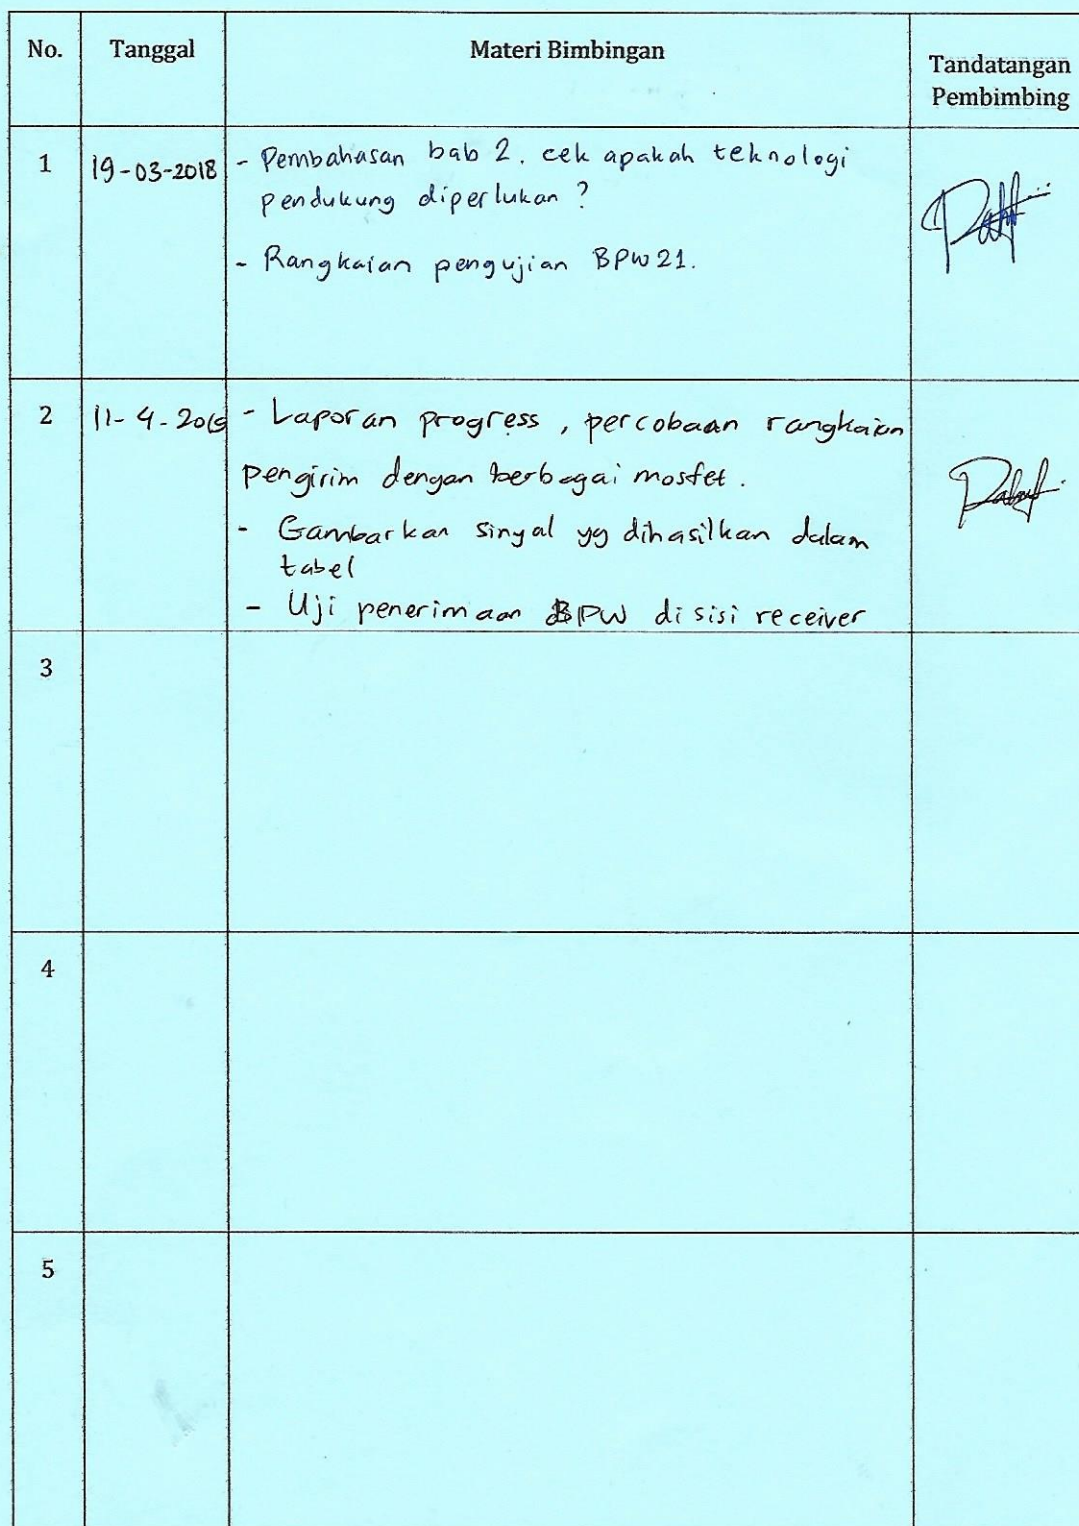 No. Tanggal Materi Bimbingan Tandatangan
Pembimbing
1 19-03-2018 - Pembahasan bab 2. cek apakah teknologi
pendukung diperlukan ?
- Rangkaian pengujian BPW21.
2 11-4-2018 - Laporan progress, percobaan rangkaian
pengirim dengan berbagai mosfet.
- Gambarkan sinyal yg dihasilkan dalam
tabel
- Uji penerimaan BPW di sisi receiver
3
4
5